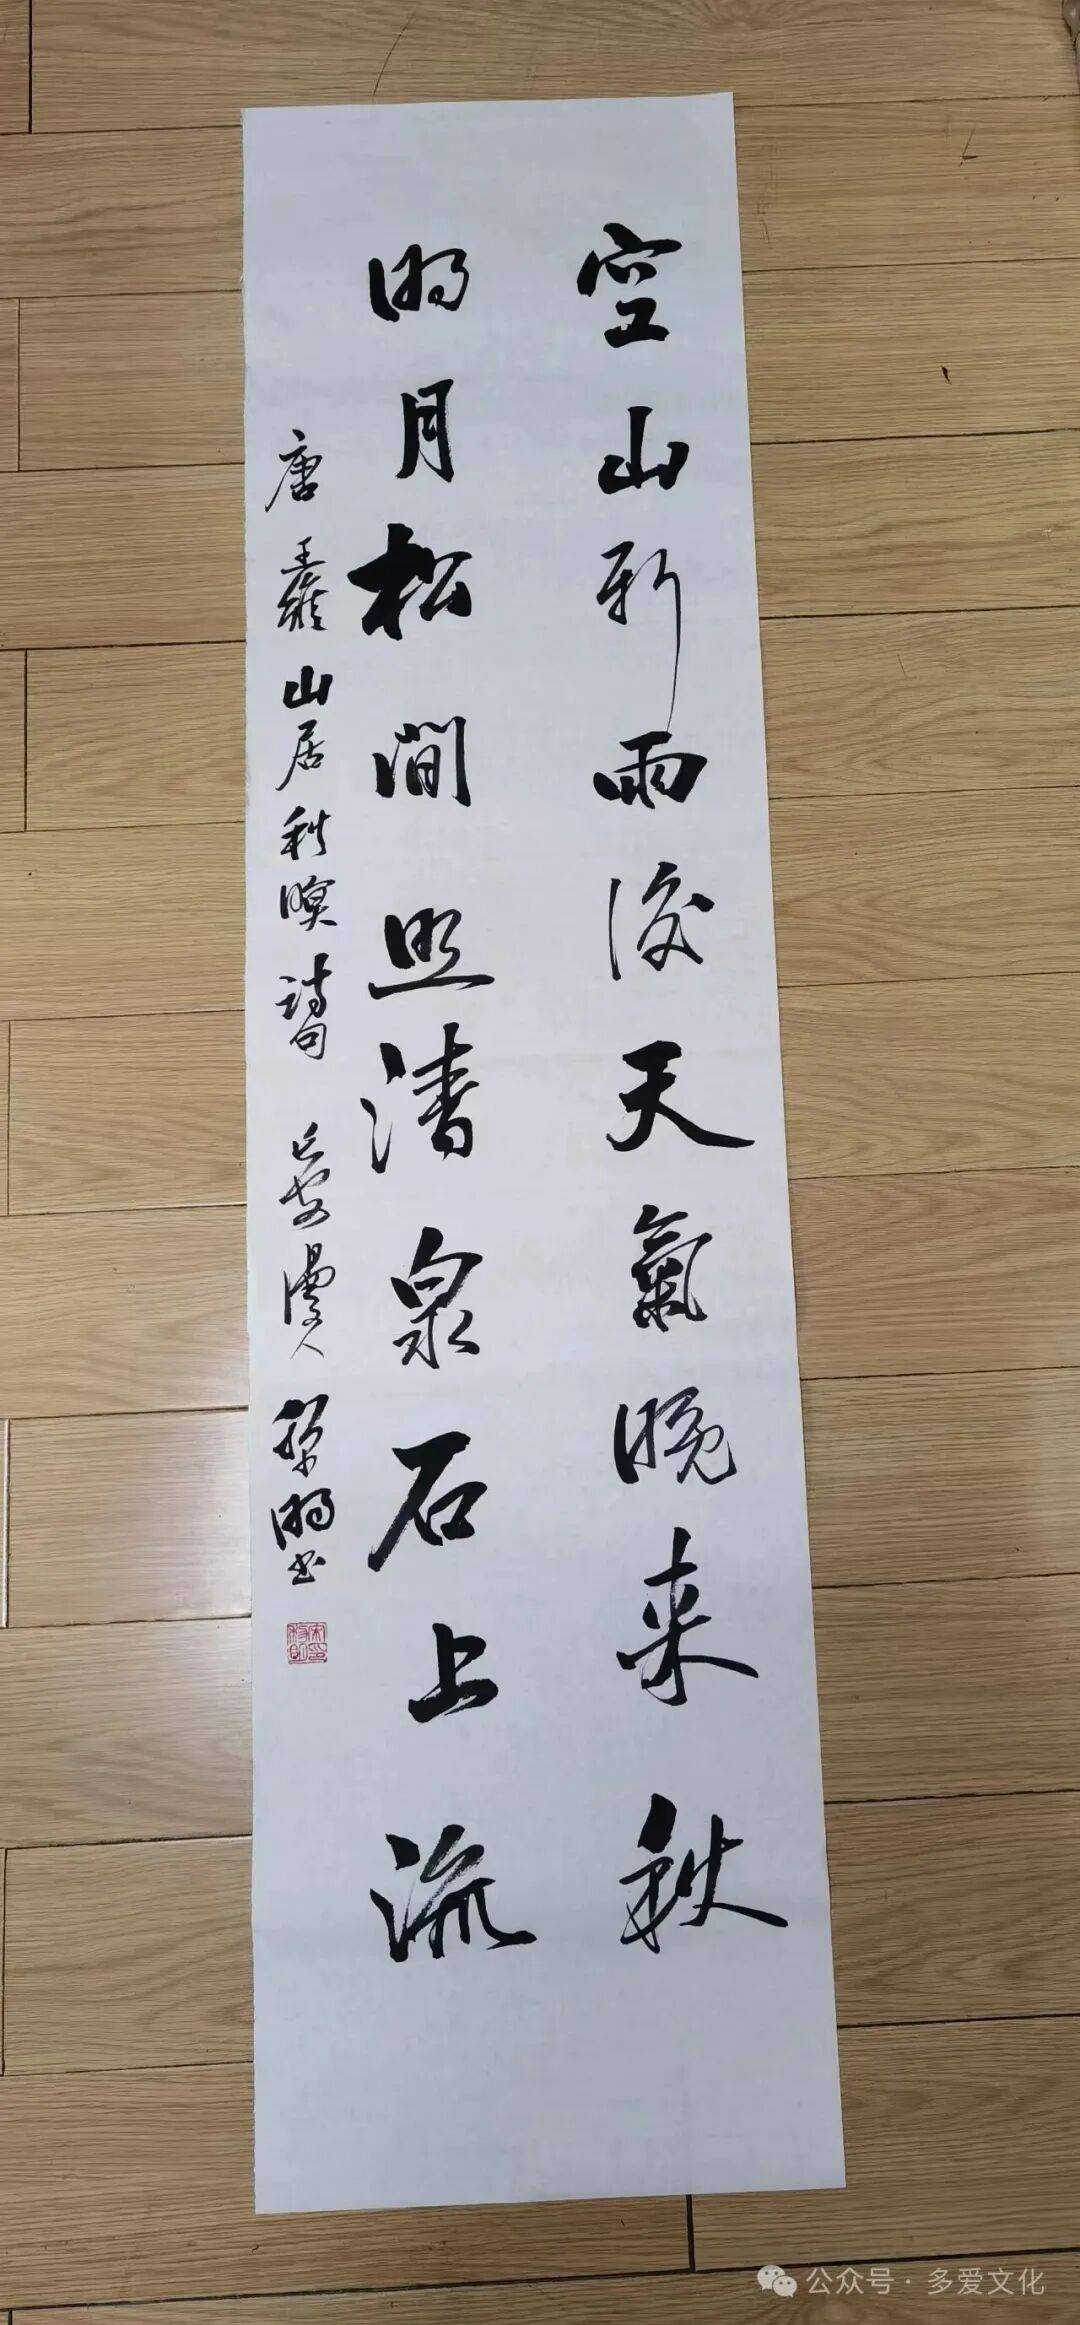 空山新雨後天氣晚来秋
明月松間照清泉石上流
唐 王維 山居秋暝詩句 漫人 黎明书
公众号·多爱文化